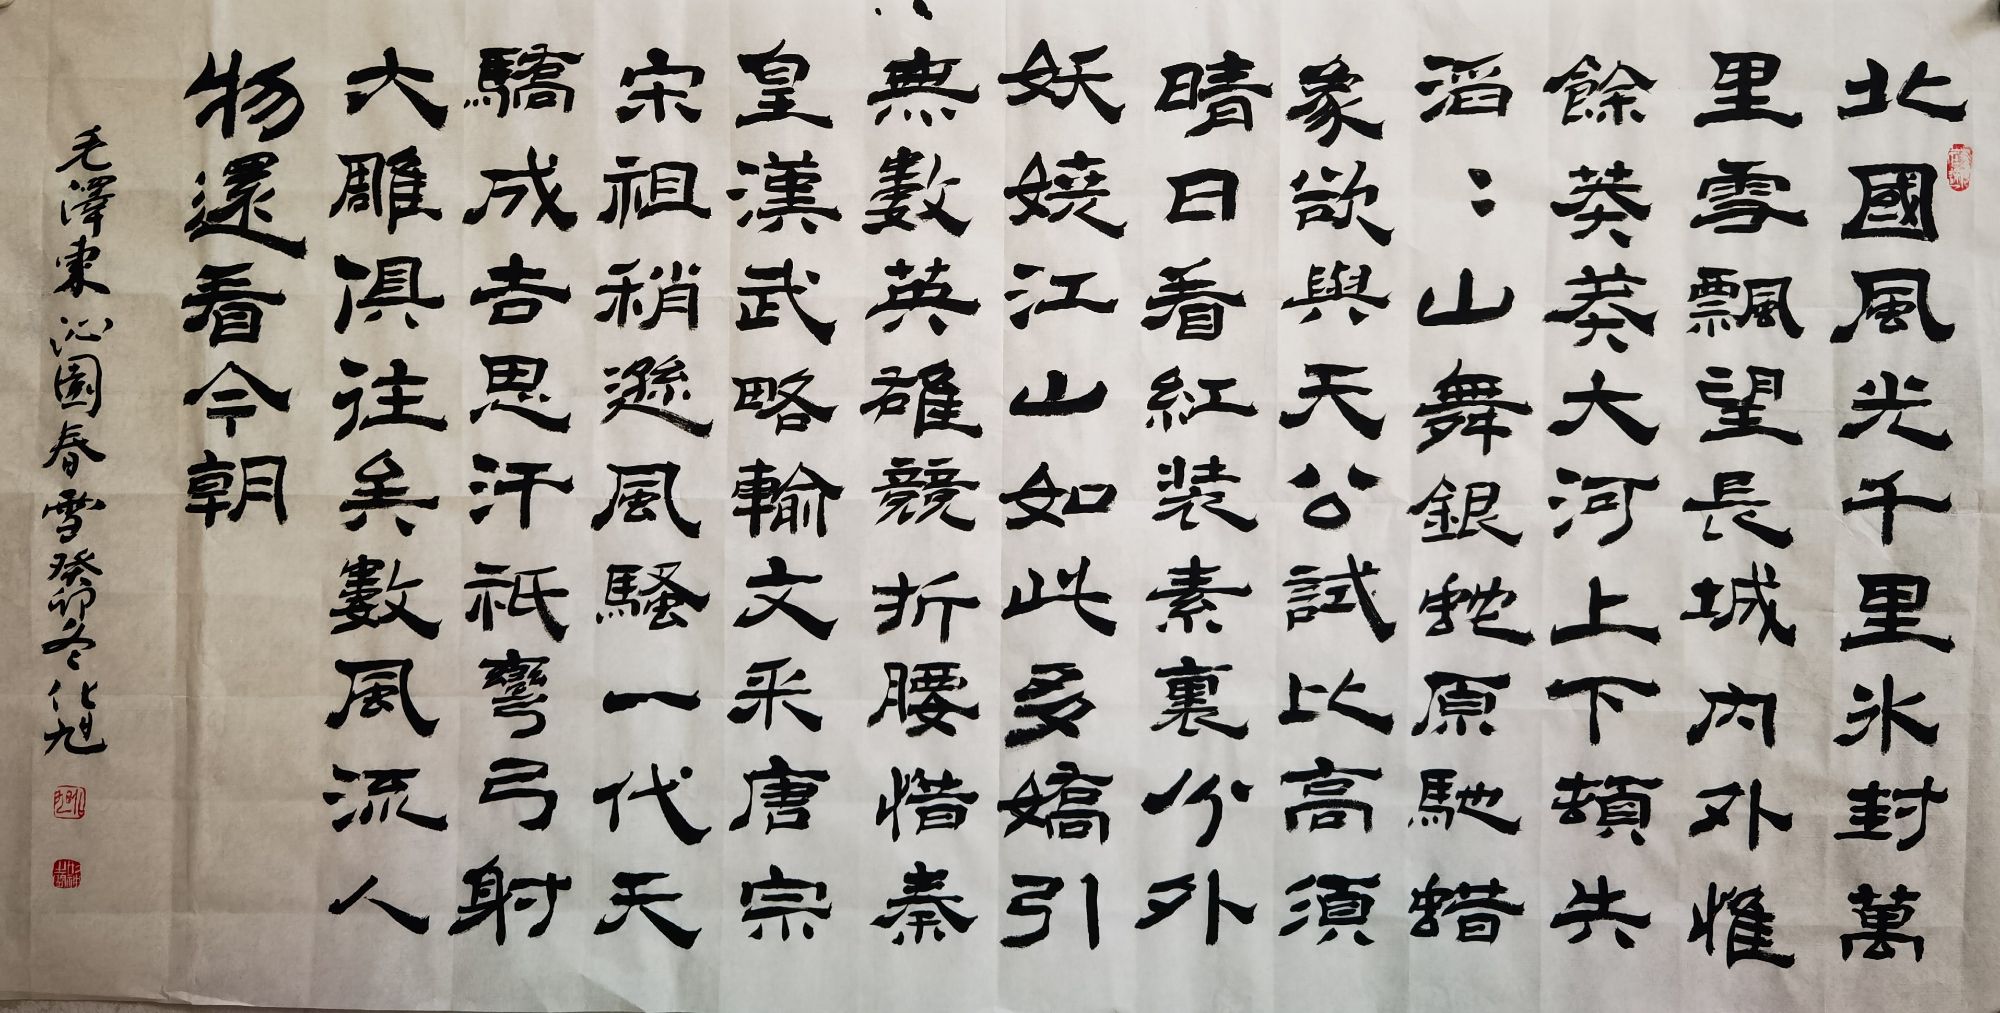 北國風光千里氷封萬
里雪飄望長城內外惟
餘莽莽大河上下頓失
滔：山舞銀蛇原馳蜡
象欲與天公試比高須
晴日看紅装素裏分外
妖娆江山如此多嬌引
無數英雄競折腰惜秦
皇漢武略輸文采唐宗
宋祖稍遜風騷一代天
驕成吉思汗祇彎弓射
大雕俱往矣數風流人
物還看今朝
毛澤東沁園春雪癸卯冬化旭